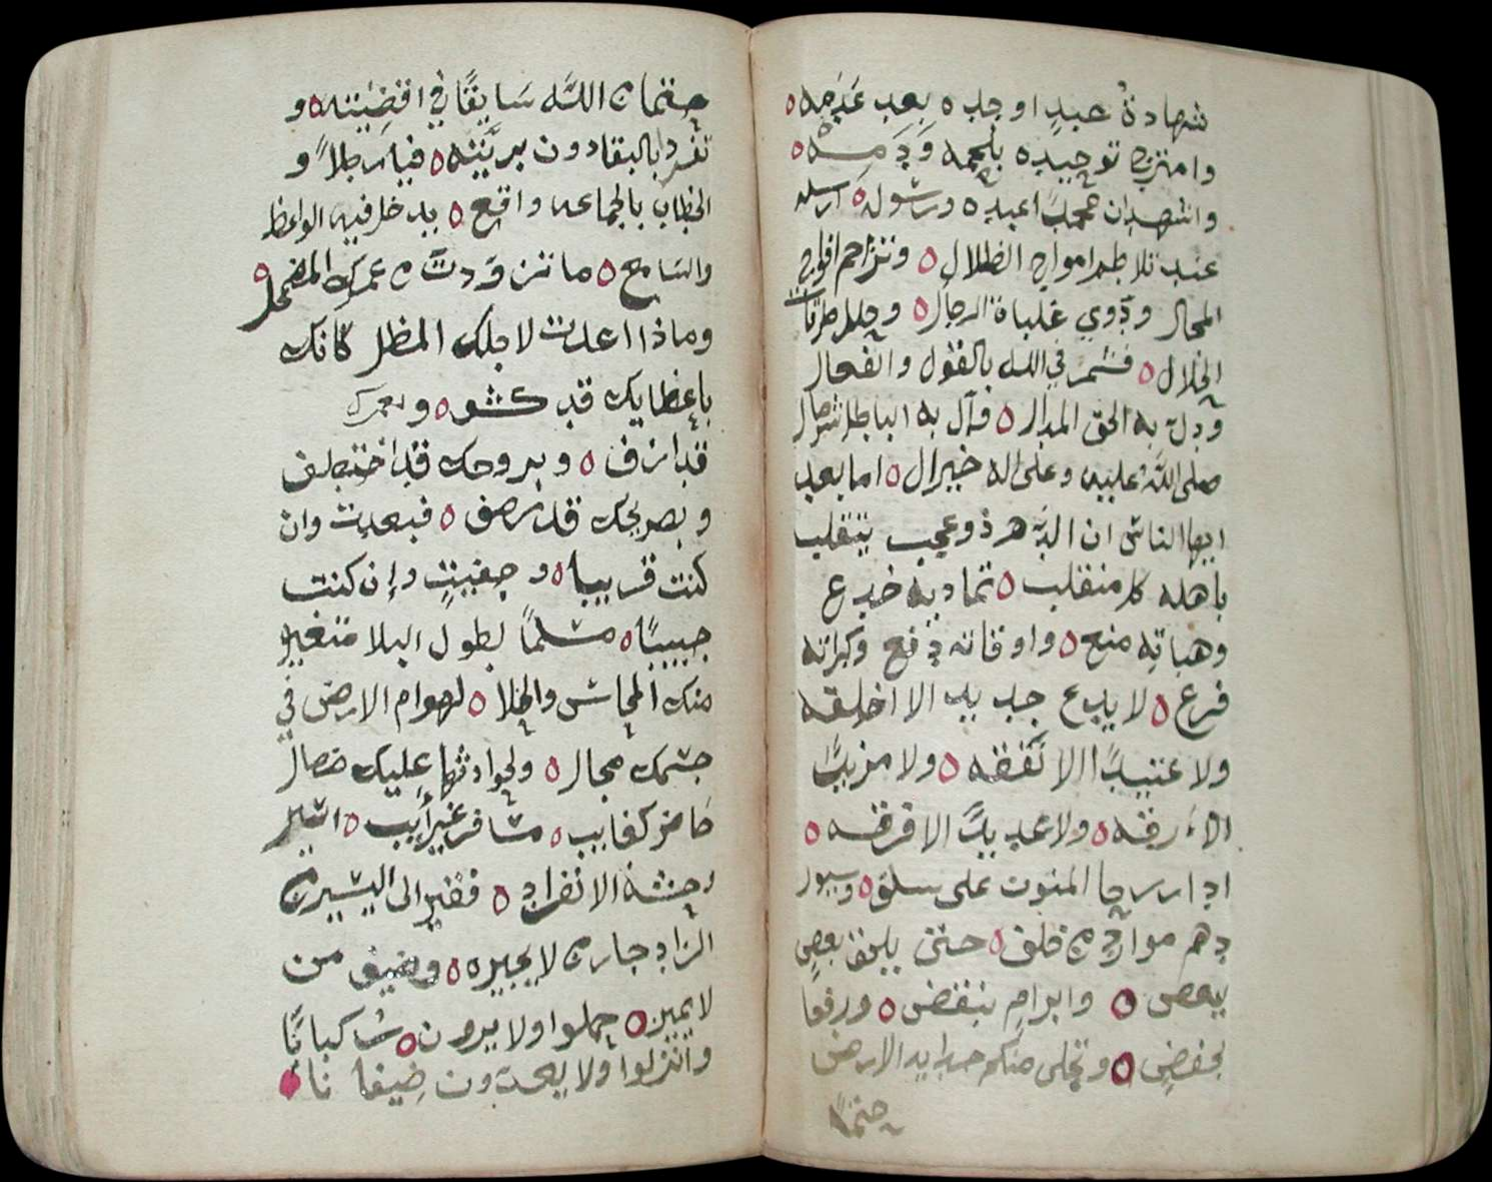 شهادة عبدٍ اوجده بعد عَدَمِه ه
وامتزج توحيده بلحمه وَدَمِـــه ه
واشهد ان محمدًا عبده ورسوله ه ارسله
عند تلاطم امواج الضلال ه وتزاحم افواج
المحال ودَوي غلباة الرجال ه
الخلال ه فشمر في الله بالقول والفعال
ودل به الحق المدال ه وآل به الباطل شر مال
صلى اللهُ عليه وعلى اله خير ال ه اما بعد
ايها الناس ان الدَّهر ذو عجب يتقلب
باهله كل منقلب ه تماديه خدع
وهباتِه منع ه واوقاته دفع وكراته
فرع ه لا يدع جديد الا اخلقه
ولا عتيدًا الا نَقَضَه ه ولا مزيدًا
ولا عديدًا الا فرقه ه
ادار رحا المنون على سلق ه وسيول
دهم مواد ج قلق ه حتى يلحق بعضٍ
ببعض ه وابرامٍ بنقض ه ورفعا
بخفضٍ ه وتخلى منكم جدايد الارض
حتمًا
حتما من اللَّه سَابِقًا في اقضِيَتِه ه و
تفرد بالبقا دون بريَّتِه ه فيا رجلاً و
الخطاب بالجماعه واقع ه يدخل فيه الواعظ
والسامع ه ما تزوَّدتَّ من عمرك المضمحل ه
وماذا اعددت لاجلك المظل كانك
باعطايك قد كشو ه و عمرك
قد انزف ه وبروحك قد اختطف
وبصريحك قد رصف ه فبعدت وان
كنت قريبا ه وجفيتٍ وإن كنت
حبيبًا ه مسلمًا لطول البلا متغير
منك المحاسن والحلا ه لهوام الارض في
جسمك مجال ه ولحوادثها عليك مصال
حاضر كغايب ه مسافر غير آيب ه اسير
وحشة الانفراد ه فقير الى اليسير من
الزاد جار من لا يجيره ه وضيف من
لا يميره ه حملوا ولا يرون ه ركبانًا
وانزلوا ولا يعدون ضِيفانًا ه